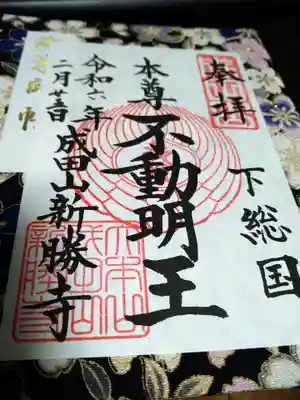 奉拝
下総国
本尊
不動明王
令和六年
二月廿五日
成田山新勝寺